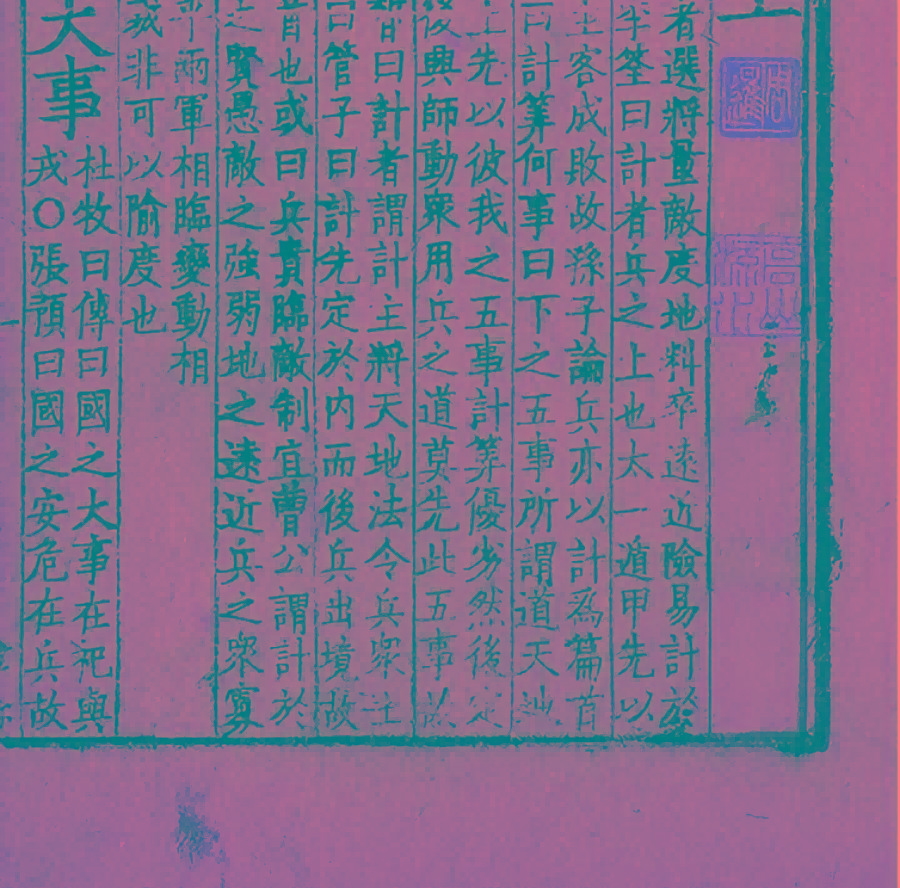 周暹
者選將量敵度地料卒遠近險易計於
筌曰計者兵之上也太一遁甲先以
客成敗故孫子論兵亦以計為篇首
曰計筭何事曰下之五事所謂道天地
先以彼我之五事計筭優劣然後定
後興師動眾用兵之道莫先此五事故
曰計者謂計主將天地法令兵眾士
曰管子曰計先定於內而後兵出境故
首也或曰兵貴臨敵制宜曹公謂計於
之賢愚敵之強弱地之遠近兵之眾寡
兩軍相臨變動相
非可以隃度也
大事
杜牧曰傳曰國之大事在祀與
戎○張預曰國之安危在兵故